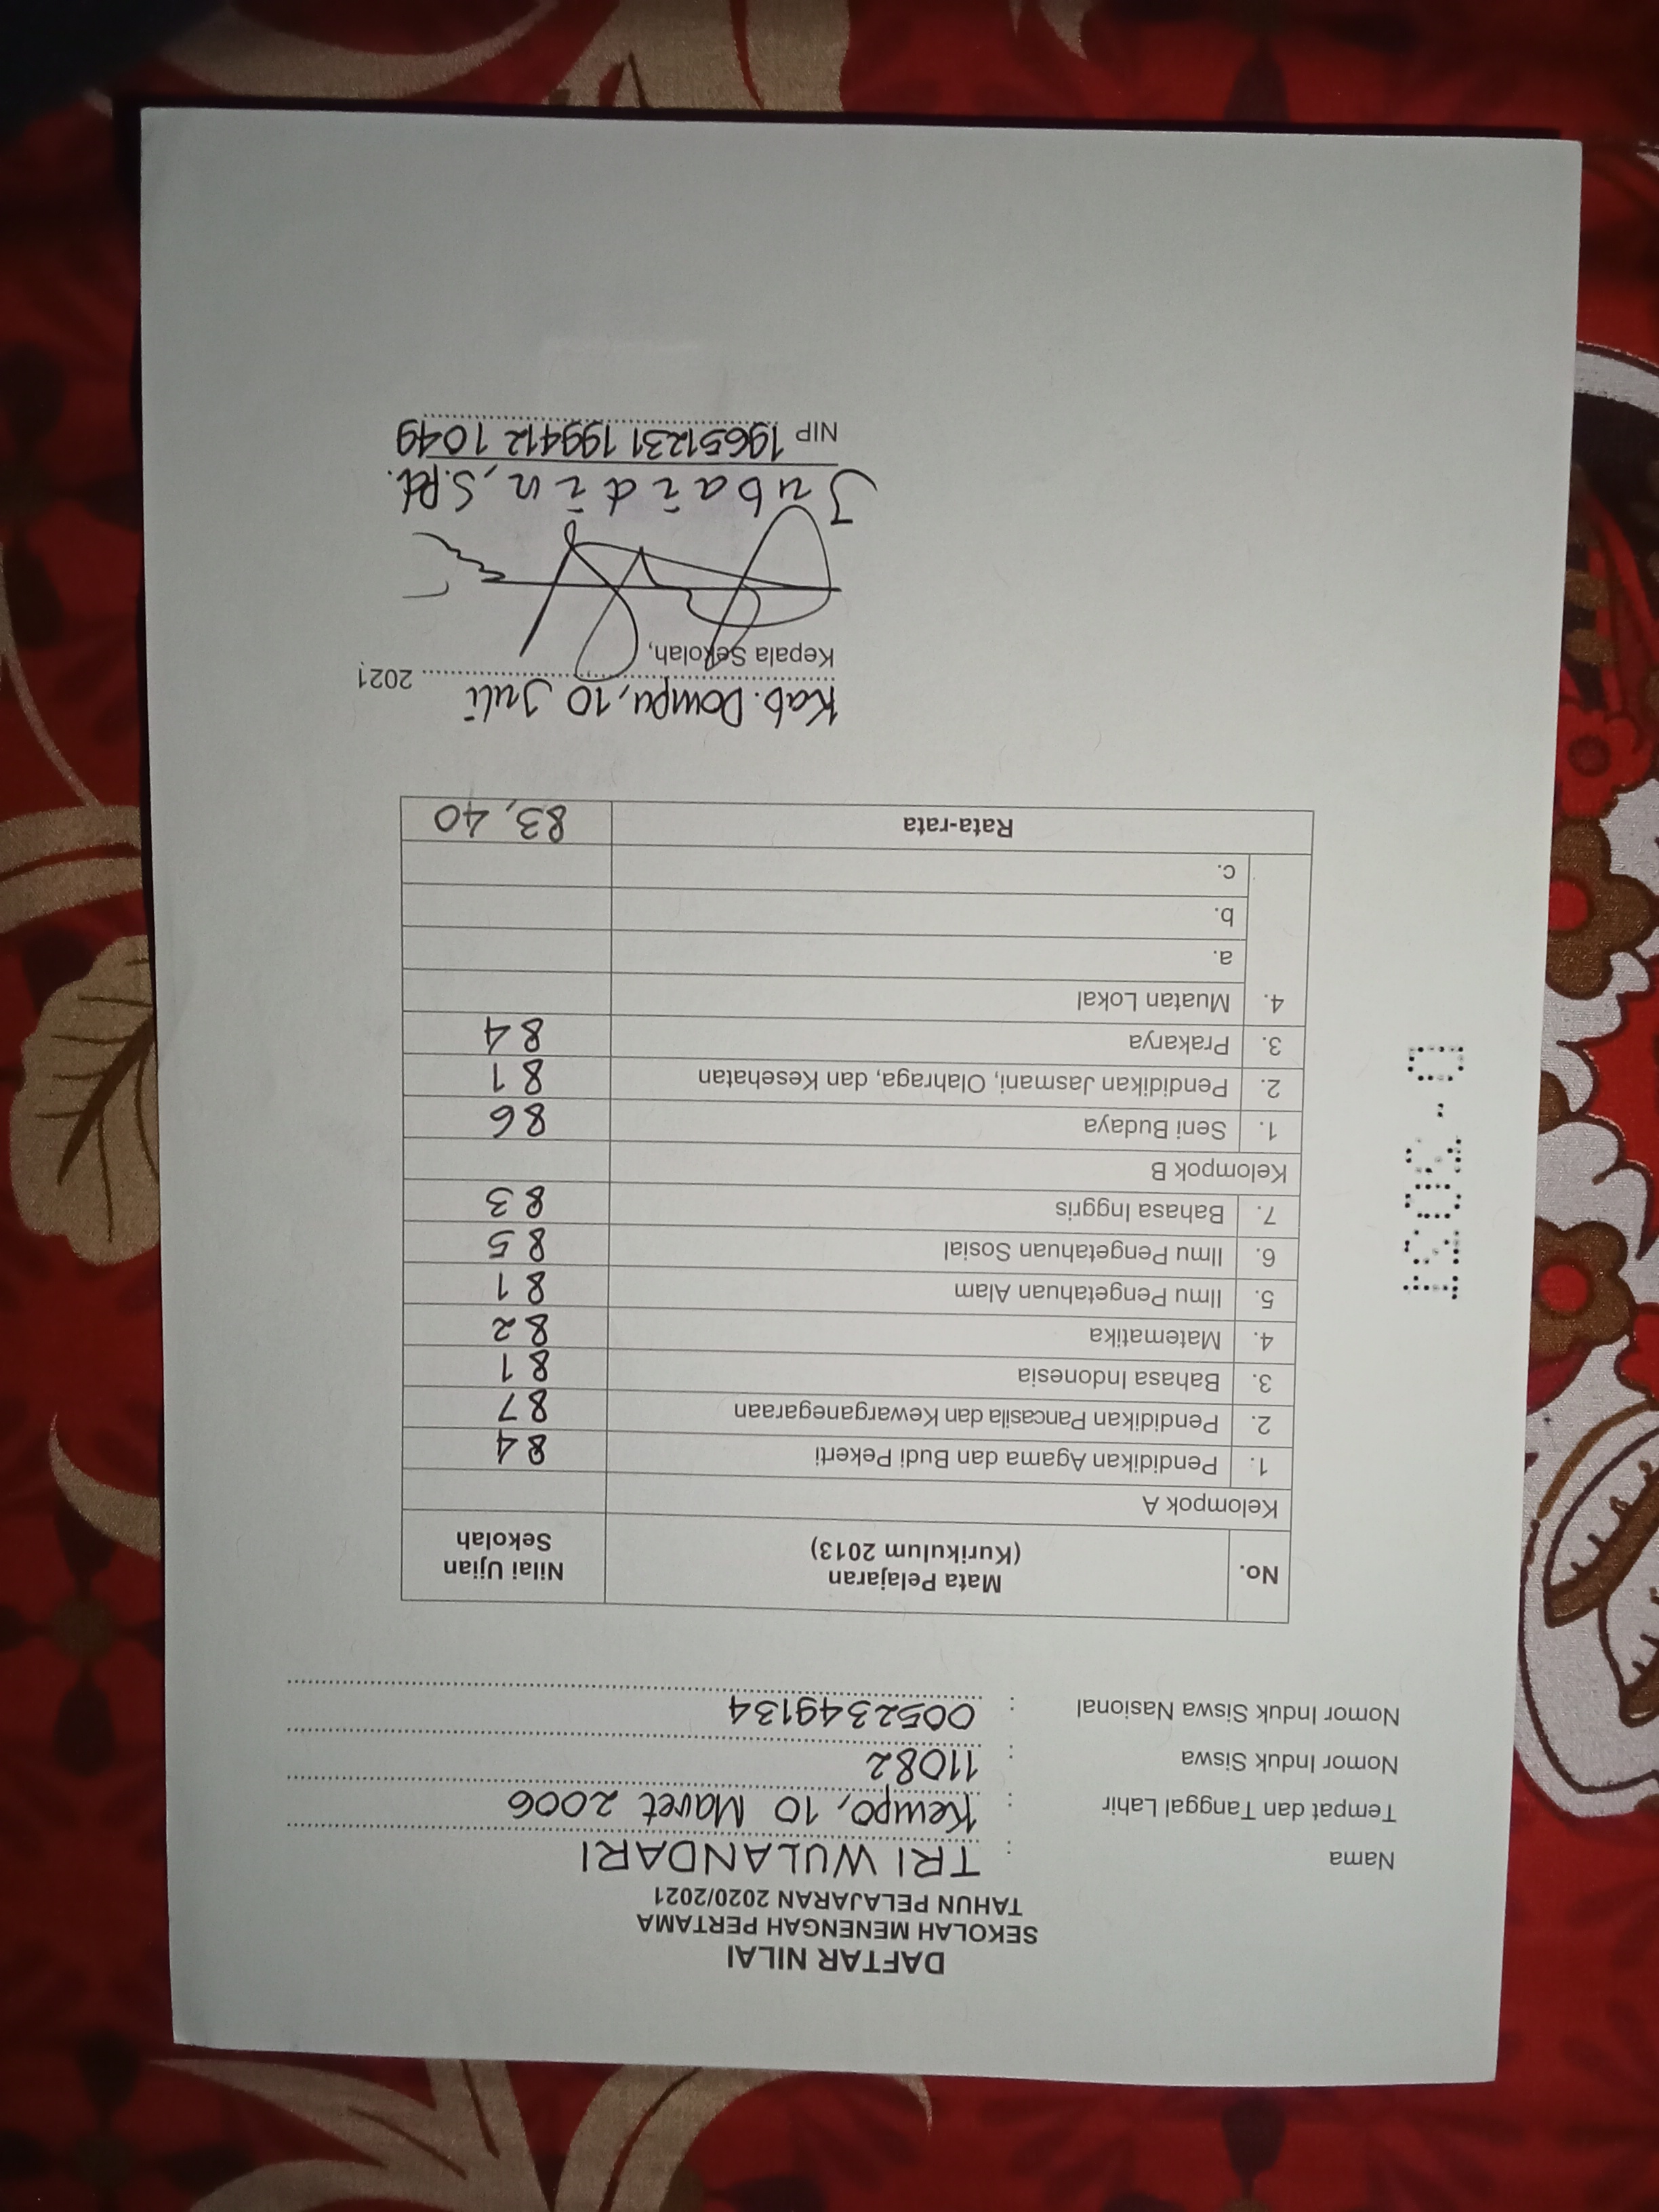 DAFTAR NILAI
SEKOLAH MENENGAH PERTAMA
TAHUN PELAJARAN 2020/2021
Nama : TRI WULANDARI
Tempat dan Tanggal Lahir : Kempo, 10 Maret 2006
Nomor Induk Siswa : 11082
Nomor Induk Siswa Nasional : 0052349134
No. Mata Pelajaran (Kurikulum 2013) Nilai Ujian Sekolah
Kelompok A
1. Pendidikan Agama dan Budi Pekerti 84
2. Pendidikan Pancasila dan Kewarganegaraan 87
3. Bahasa Indonesia 81
4. Matematika 82
5. Ilmu Pengetahuan Alam 81
6. Ilmu Pengetahuan Sosial 85
7. Bahasa Inggris 83
Kelompok B
1. Seni Budaya 86
2. Pendidikan Jasmani, Olahraga, dan Kesehatan 81
3. Prakarya 84
4. Muatan Lokal
a.
b.
c.
Rata-rata 83,40
Kab. Dompu, 10 Juli 2021
Kepala Sekolah,
Jubaidin, S.Pd.
NIP 19651231 199412 1049